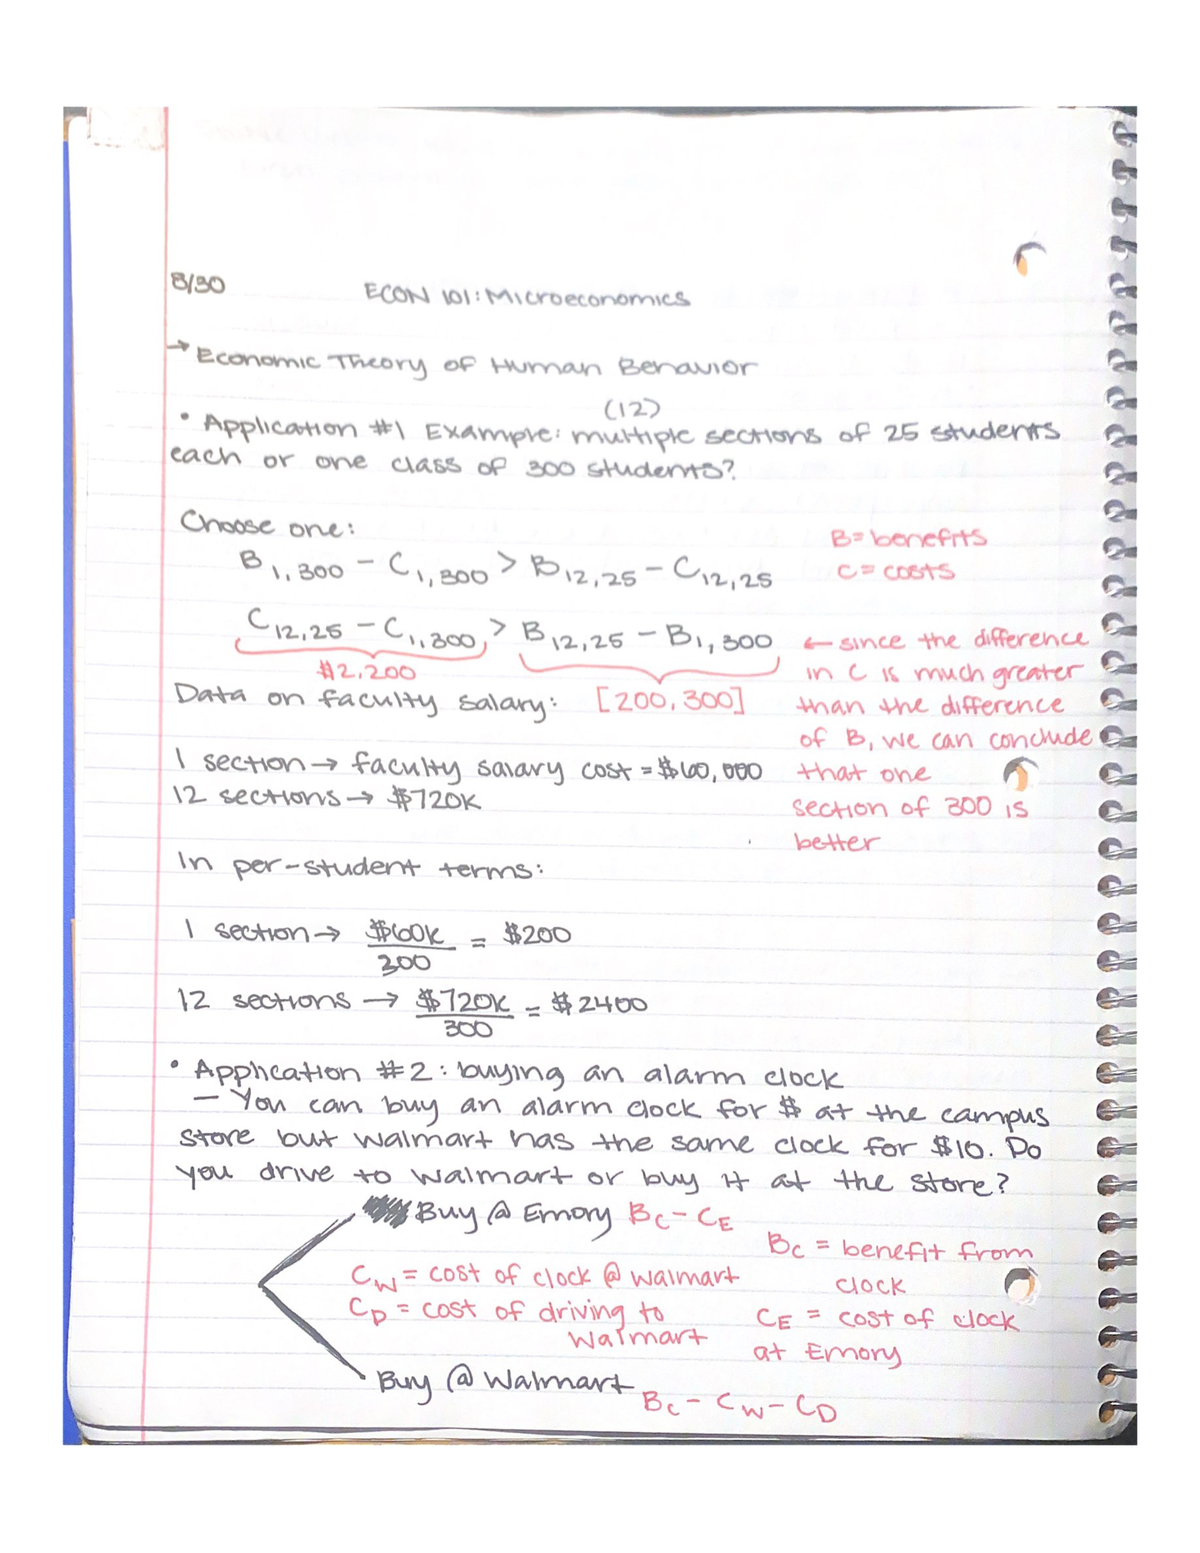 8/30
ECON 101: Microeconomics
→ Economic Theory of Human Behavior
(12)
• Application #1 Example: multiple sections of 25 students
each or one class of 300 students?
Choose one:
B = benefits
B1,300 - C1,300 > B12,25 - C12,25
C = costs
C12,25 - C1,300 > B12,25 - B1,300
← since the difference
$2,200
in C is much greater
Data on faculty salary: [200,300]
than the difference
of B, we can conclude
1 section → faculty salary cost = $60,000
that one
12 sections → $720K
section of 300 is
better
In per-student terms:
1 section → $60K / 300 = $200
12 sections → $720K / 300 = $2400
• Application #2: buying an alarm clock
- You can buy an alarm clock for $ at the campus
store but Walmart has the same clock for $10. Do
you drive to Walmart or buy it at the store?
Buy @ Emory BC - CE
BC = benefit from
clock
CW = cost of clock @ Walmart
CD = cost of driving to
Walmart
CE = cost of clock
at Emory
Buy @ Walmart
BC - CW - CD